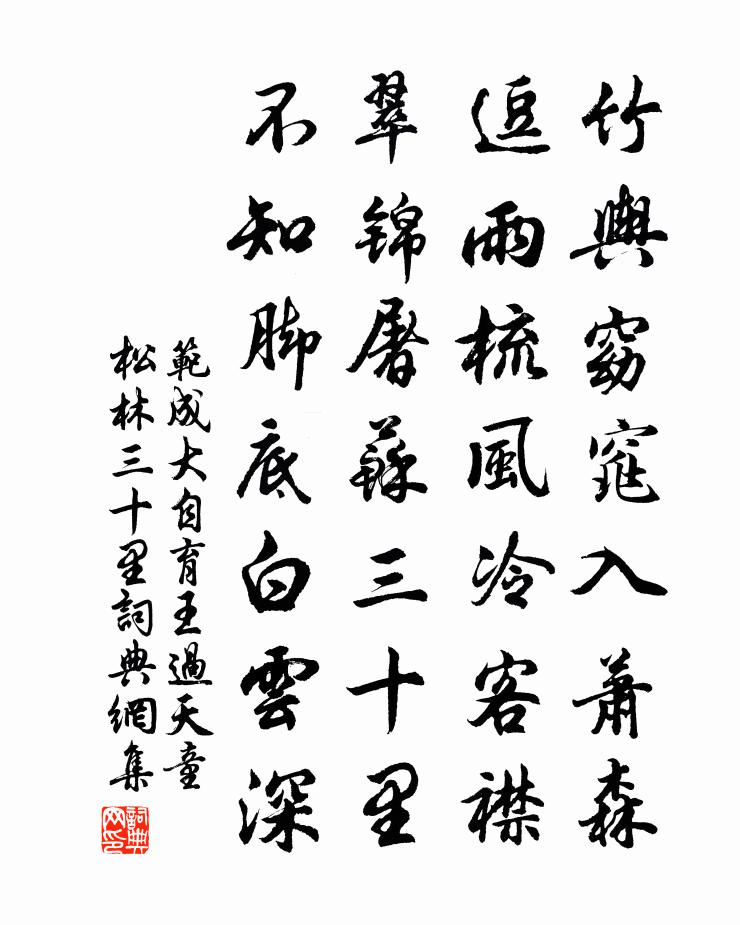 竹輿窈窕入蕭森
逗雨梳風冷客襟
翠錦屠蘇三十里
不知脚底白雲深
範成大自育王過天童
松林三十里詞典網集
詞典网印